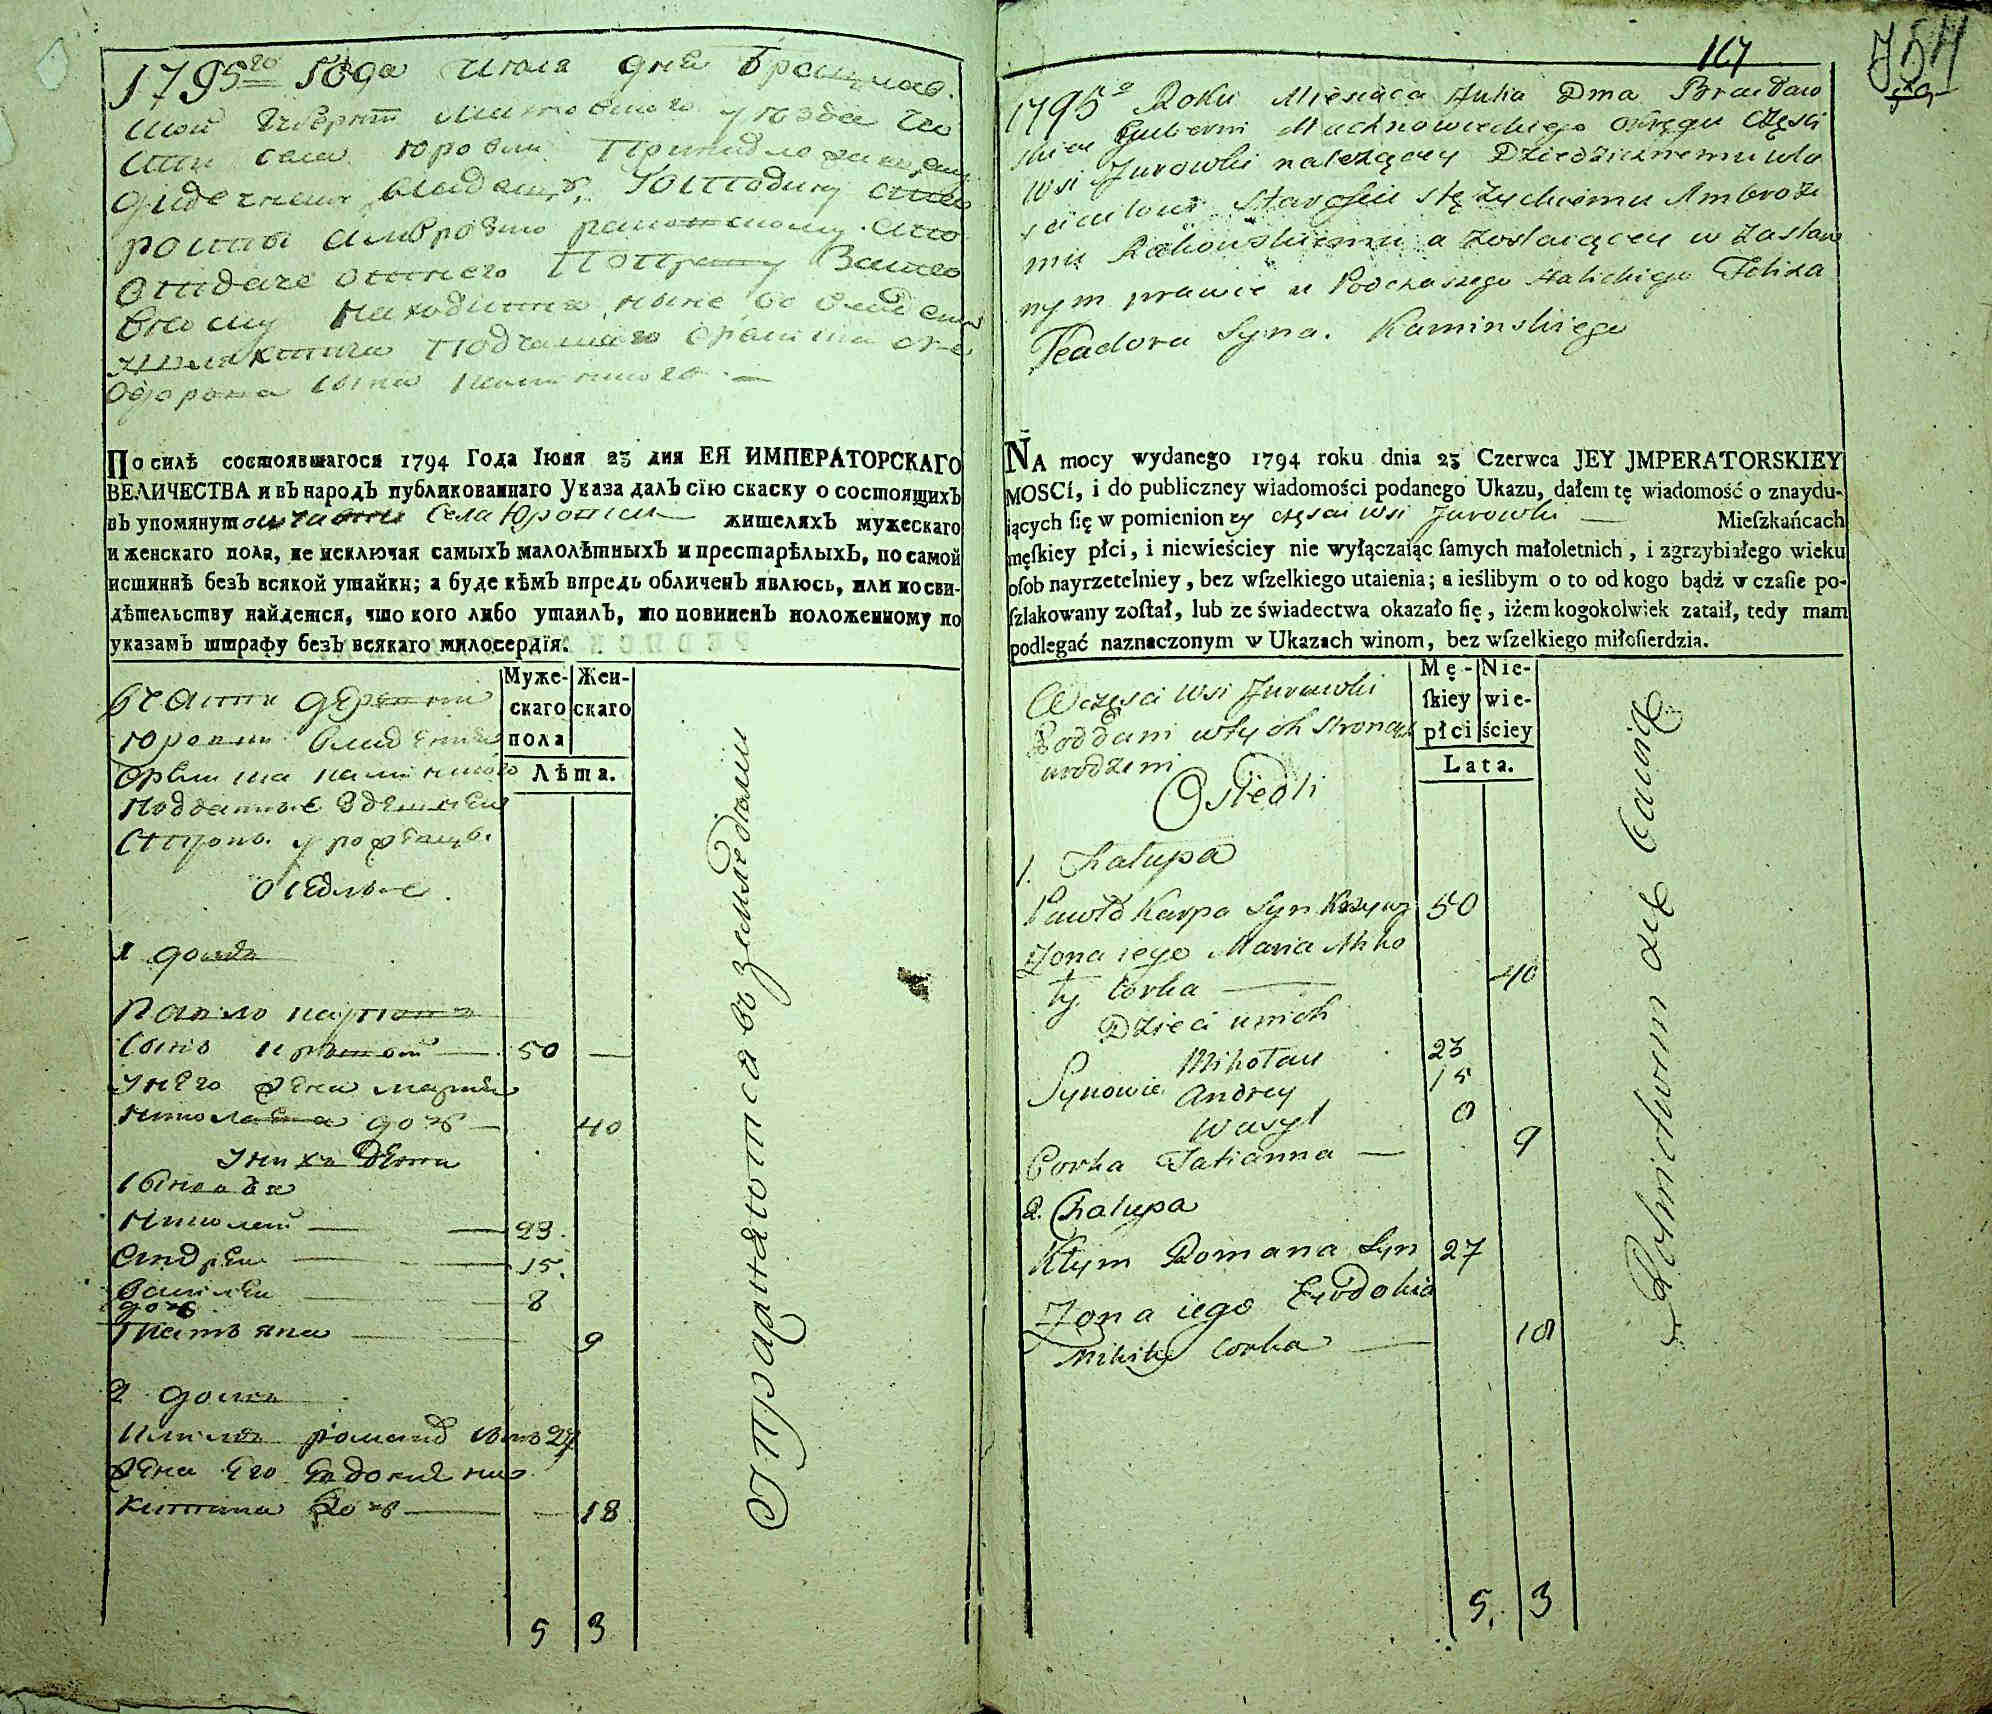 1795го Года Июля дня Брацлав.
ской Губернии уезда ча
сти села Юровки Принадлежащей
дидичному владельцу, Господину
росты Амброзию
отдаче
находится ныне во владении
шляхтича Подчашего
одорова сына каминского. —
По силѣ состоявшагося 1794 Года Іюня 23 дня ЕЯ ИМПЕРАТОРСКАГО
ВЕЛИЧЕСТВА и въ народъ публикованнаго Указа далъ сію скаску о состоящихъ
въ упомянутой части Села Юровки жителяхъ мужескаго
и женскаго пола, не исключая самыхъ малолѣтныхъ и престарѣлыхъ, по самой
истиннѣ безъ всякой утайки; а буде кѣмъ впредь обличенъ явлюсь, или по сви-
дѣтельству найдется, что кого либо утаилъ, то повиненъ положенному по
указамъ штрафу безъ всякаго милосердія.
Муже-
скаго
пола
Жен-
скаго
Лѣта.
Вчасти деревни
Юровки владения
каминского
Подданные здешнеи
Стронъ урожденцъ.
Оседлые
1 домъ
Павло карпова
сынъ 50 —
унего жена мария
николаева дочь — 40
унихъ дети
сыновья
Николай — 23.
Андреи — 15.
Василеи — 8
дочь
Татьяна — 9
2 домъ
Климъ романа сынъ 27
жена его Евдокия ни
китина дочь — 18
5 3
Упражняются въ земледелии
167
1795o Roku Miesiąca Julia Dnia Bracław
skiey Guberni Machnowieckiego okręgu Części
Wsi Jurowki należącey Dziedzicznemu wła
scicielowi Staroście Stężyckiemu Ambroże
mu Rakowskiemu a zostaiącey w zastaw
nym prawie u Podczaszego Halickiego Felixa
Teadora Syna. Kaminskiego
NA mocy wydanego 1794 roku dnia 23 Czerwca JEY JMPERATORSKIEY
MOSCI, i do publiczney wiadomości podanego Ukazu, dałem tę wiadomość o znaydu-
iących ſię w pomienioney częsci wsi Jurowki — Mieſzkańcach
męſkiey płci, i niewieściey nie wyłączaiąc ſamych małoletnich, i zgrzybiałego wieku
oſob nayrzetelniey, bez wſzelkiego utaienia; a ieślibym o to od kogo bądź w czaſie po-
ſzlakowany zoſtał, lub ze świadectwa okazało ſię, iżem kogokolwiek zataił, tedy mam
podlegać naznaczonym w Ukazach winom, bez wſzelkiego miłoſierdzia.
Mę-
ſkiey
płci
Nie-
wie-
ściey
Lata.
W częsci Wsi Jurowki
Poddani wtych Stronach
urodzeni
Osiedli
1. Chałupa
Pawło Karpa Syn 50
Zona iego Maria Miko
ły Corka — 40
Dzieci unich
Synowie Mikołay 23
Andrey 15
Wasyl 8
Corka Tatianna — 9
2. Chałupa
Kłym Romana Syn 27
Zona iego Ewdokia
Mikity Corka — 18
5. 3
Rolnictwem się bawią